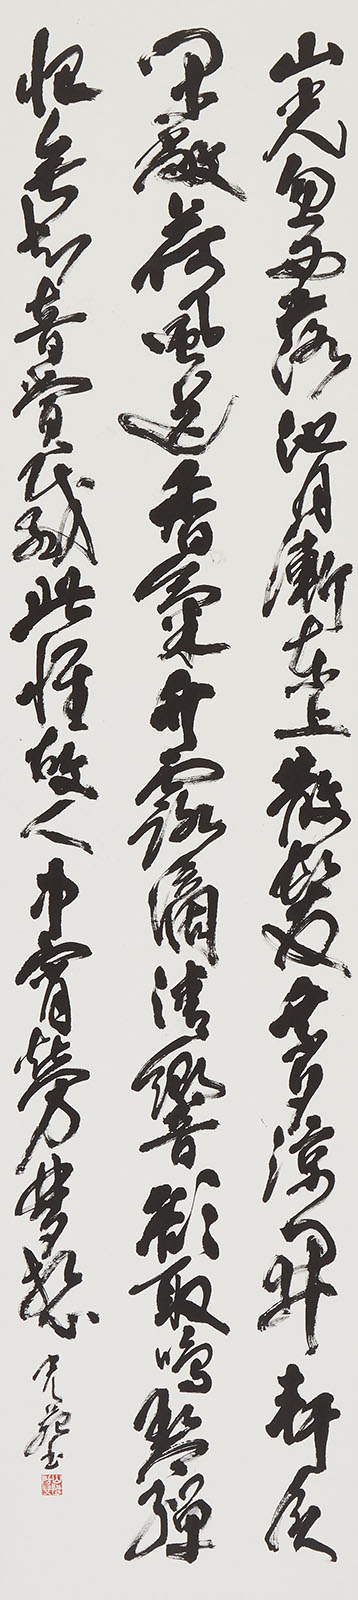 山光忽西落池月漸東上散髮乘夕涼開軒臥
閑敞荷風送香氣竹露滴清響欲取鳴琴彈
恨無知音賞感此懷故人中宵勞夢想
書